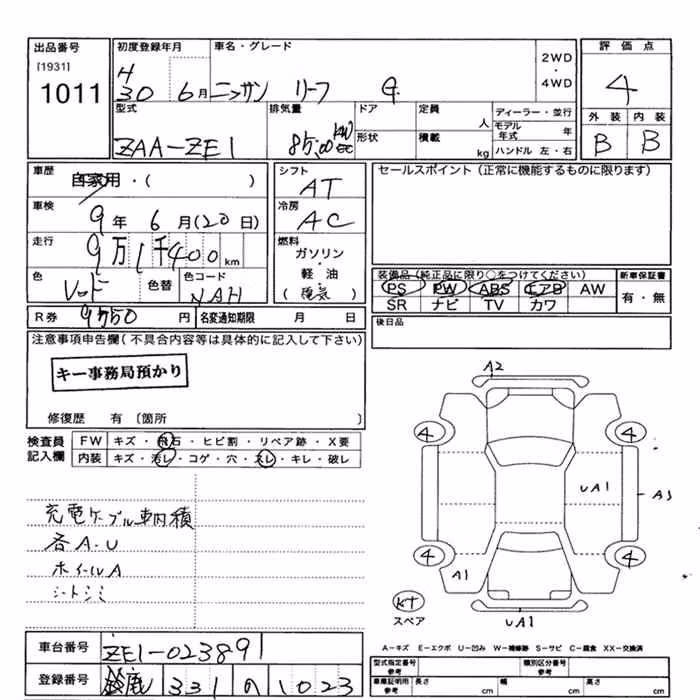 出品番号
[1931]
1011
初度登録年月
H
30 6月
車名・グレード
ニッサン リーフ G
2WD
・
4WD
評価点
4
外装 内装
B B
型式
ZAA-ZE1
排気量
85.00 KW
cc
ドア
形状
定員
人
積載
kg
ディーラー・並行
モデル年式 年
ハンドル 左・右
車歴
自家用・( )
車検
9年 6月(20日)
走行
9万1千400km
色
レッド
色替
色コード
NAH
シフト
AT
冷房
AC
燃料
ガソリン
軽油
(電気)
セールスポイント(正常に機能するものに限ります)
装備品(純正品に限り○をつけてください)
PS PW ABS エアB AW
SR ナビ TV カワ
新車保証書
有・無
R券 9550円
名変通知期限 月 日
後日品
注意事項申告欄(不具合内容等は具体的に記入して下さい)
キー事務局預かり
修復歴 有 〔箇所 〕
検査員
記入欄
FW キズ・飛石・ヒビ割・リペア跡・X要
内装 キズ・汚レ・コゲ・穴・スレ・キレ・破レ
充電ケーブル車内積
各A・U
ホイールA
シートシミ
A2
4 4
UA1
A3
4 4
A1
KT
スペア
UA1
A−キズ E−エクボ U−凹み W−補修跡 S−サビ C−腐食 XX−交換済
車台番号
ZE1-023891
登録番号
鈴鹿 331 の 1023
型式指定番号
参考
類別区分番号
参考
車庫証明用
参考
長さ cm
幅 cm
高さ cm